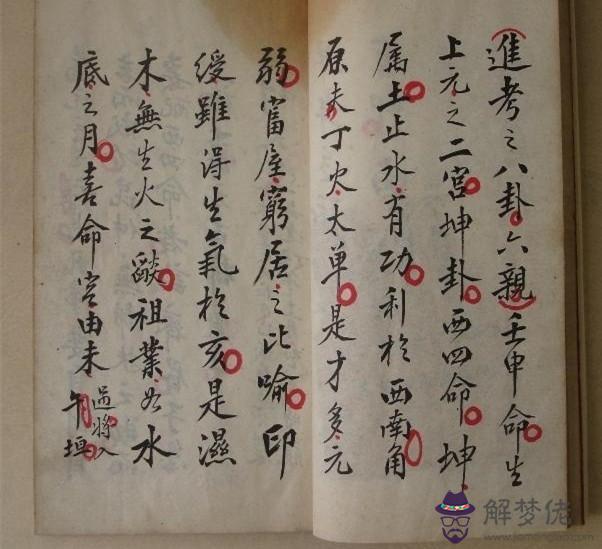 進考之八卦六親壬申命生
上元之二宮坤卦西四命坤
属土止水有功利於西南角
原夫丁火太单是才多元
弱富屋窮居之比喻印
綬雖得生氣於亥是濕
木無生火之燄祖業如水
底之月喜命宮由未過將入午垣
解梦佬
www.jiemenglao.com